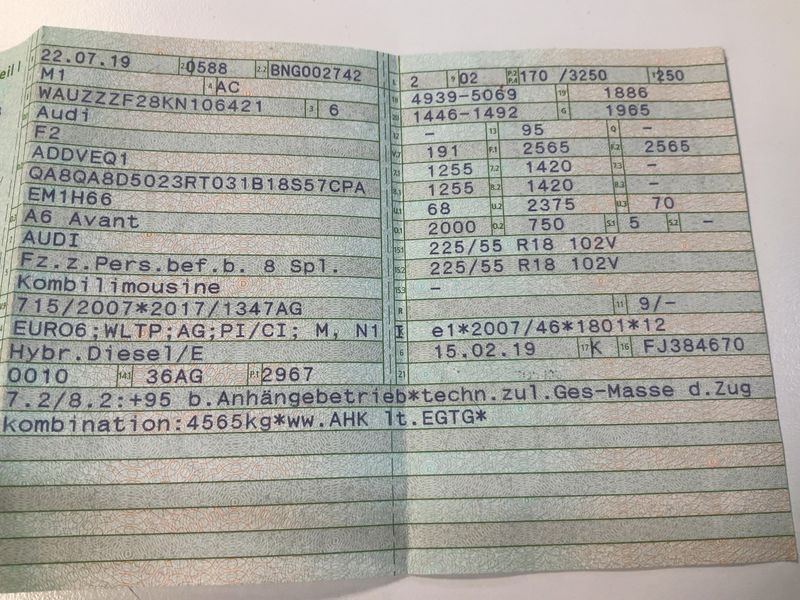 eil I
22.07.19 2.1 0588 2.2 BNG002742
M1 4 AC
WAUZZZF28KN106421 3 6
Audi
F2
ADDVEQ1
QA8QA8D5023RT031B18S57CPA
EM1H66
A6 Avant
AUDI
Fz.z.Pers.bef.b. 8 Spl.
Kombilimousine
715/2007*2017/1347AG
EURO6;WLTP;AG;PI/CI; M, N1 I
Hybr.Diesel/E
0010 14.1 36AG P.1 2967
7.2/8.2:+95 b.Anhängebetrieb*techn.zul.Ges-Masse d.Zug
kombination:4565kg*ww.AHK lt.EGTG*
L 2 9 02 P.2 P.4 170 /3250 T 250
18 4939-5069 19 1886
20 1446-1492 G 1965
12 – 13 95 Q –
V.7 191 F.1 2565 F.2 2565
7.1 1255 7.2 1420 7.3 –
8.1 1255 8.2 1420 8.3 –
U.1 68 U.2 2375 U.3 70
O.1 2000 O.2 750 S.1 5 S.2 –
15.1 225/55 R18 102V
15.2 225/55 R18 102V
15.3 –
R 11 9/–
K e1*2007/46*1801*12
6 15.02.19 17 K 16 FJ384670
21